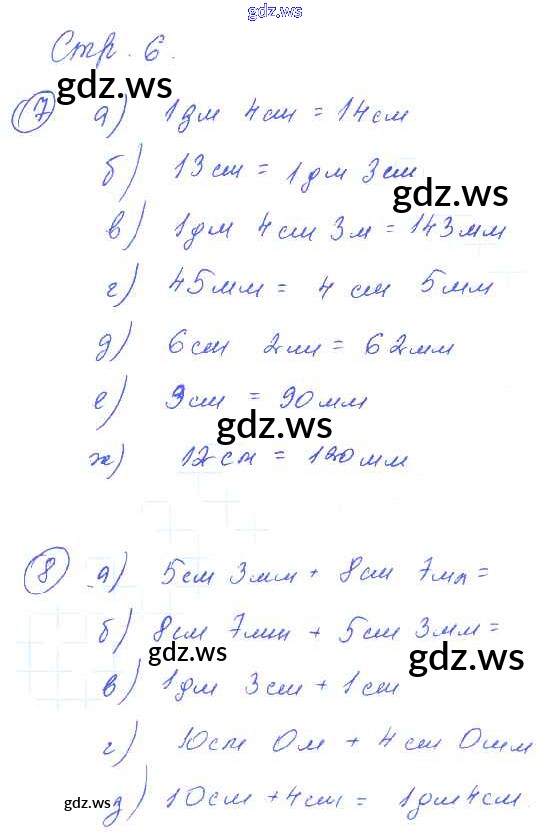 gdz.ws
Стр. 6.
gdz.ws
7 а) 1дм 4см = 14см
б) 13см = 1дм 3см
gdz.ws
в) 1дм 4см 3м = 143мм
г) 45мм = 4см 5мм
д) 6см 2мм = 62мм
е) 9см = 90мм
gdz.ws
ж) 12см = 120мм
8 а) 5см 3мм + 8см 7мм =
б) 8см 7мм + 5см 3мм =
gdz.ws
gdz.ws
в) 1дм 3см + 1см
г) 10см 0м + 4см 0мм
gdz.ws
д) 10см + 4см = 1дм 4см.